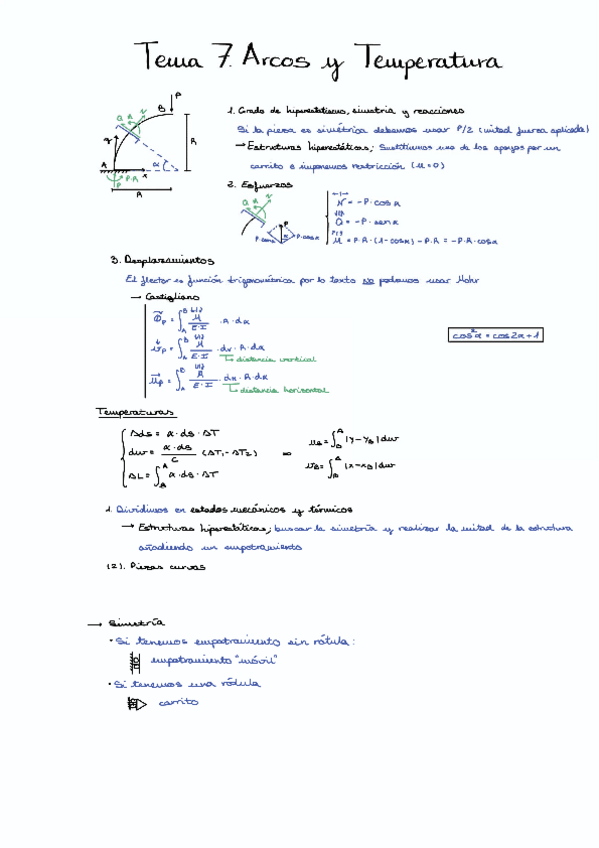 Tema 7. Arcos y Temperatura
1. Grado de hiperestatismo, simetria y reacciones
Si la pieza es simétrica debemos usar P/2 (mitad fuerza aplicada)
→ Estructuras hiperestáticas; Sustituimos uno de los apoyos por un
carrito e imponemos restricción (u=0)
P
B
N
Q
R
y
A
x
α
P·R
P
R
2. Esfuerzos
N = -P·cosα
Q = -P·senα
M = P·R·(1-cosα) - P·R = -P·R·cosα
N
Q
P
P·senα
α
P·cosα
3. Desplazamientos
El flector es función trigonométrica por lo tanto no podemos usar Mohr
→ Castigliano
cos²α = cos2α+1
distancia vertical
distancia horizontal
Temperaturas
Δds = α·ds·ΔT
dω = α·ds/C (ΔT₁-ΔT₂) ∞ u_B = ∫ |y-y_B|dω
ΔL = ∫ α·ds·ΔT v_B = ∫ |x-x_B|dω
1. Dividimos en estados mecánicos y térmicos
→ Estructuras hiperestáticas; buscar la simetría y realizar la mitad de la estructura
añadiendo un empotramiento
(2). Piezas curvas
→ Simetría
• Si tenemos empotramiento sin rótula:
empotramiento "móvil"
• Si tenemos una rótula
carrito